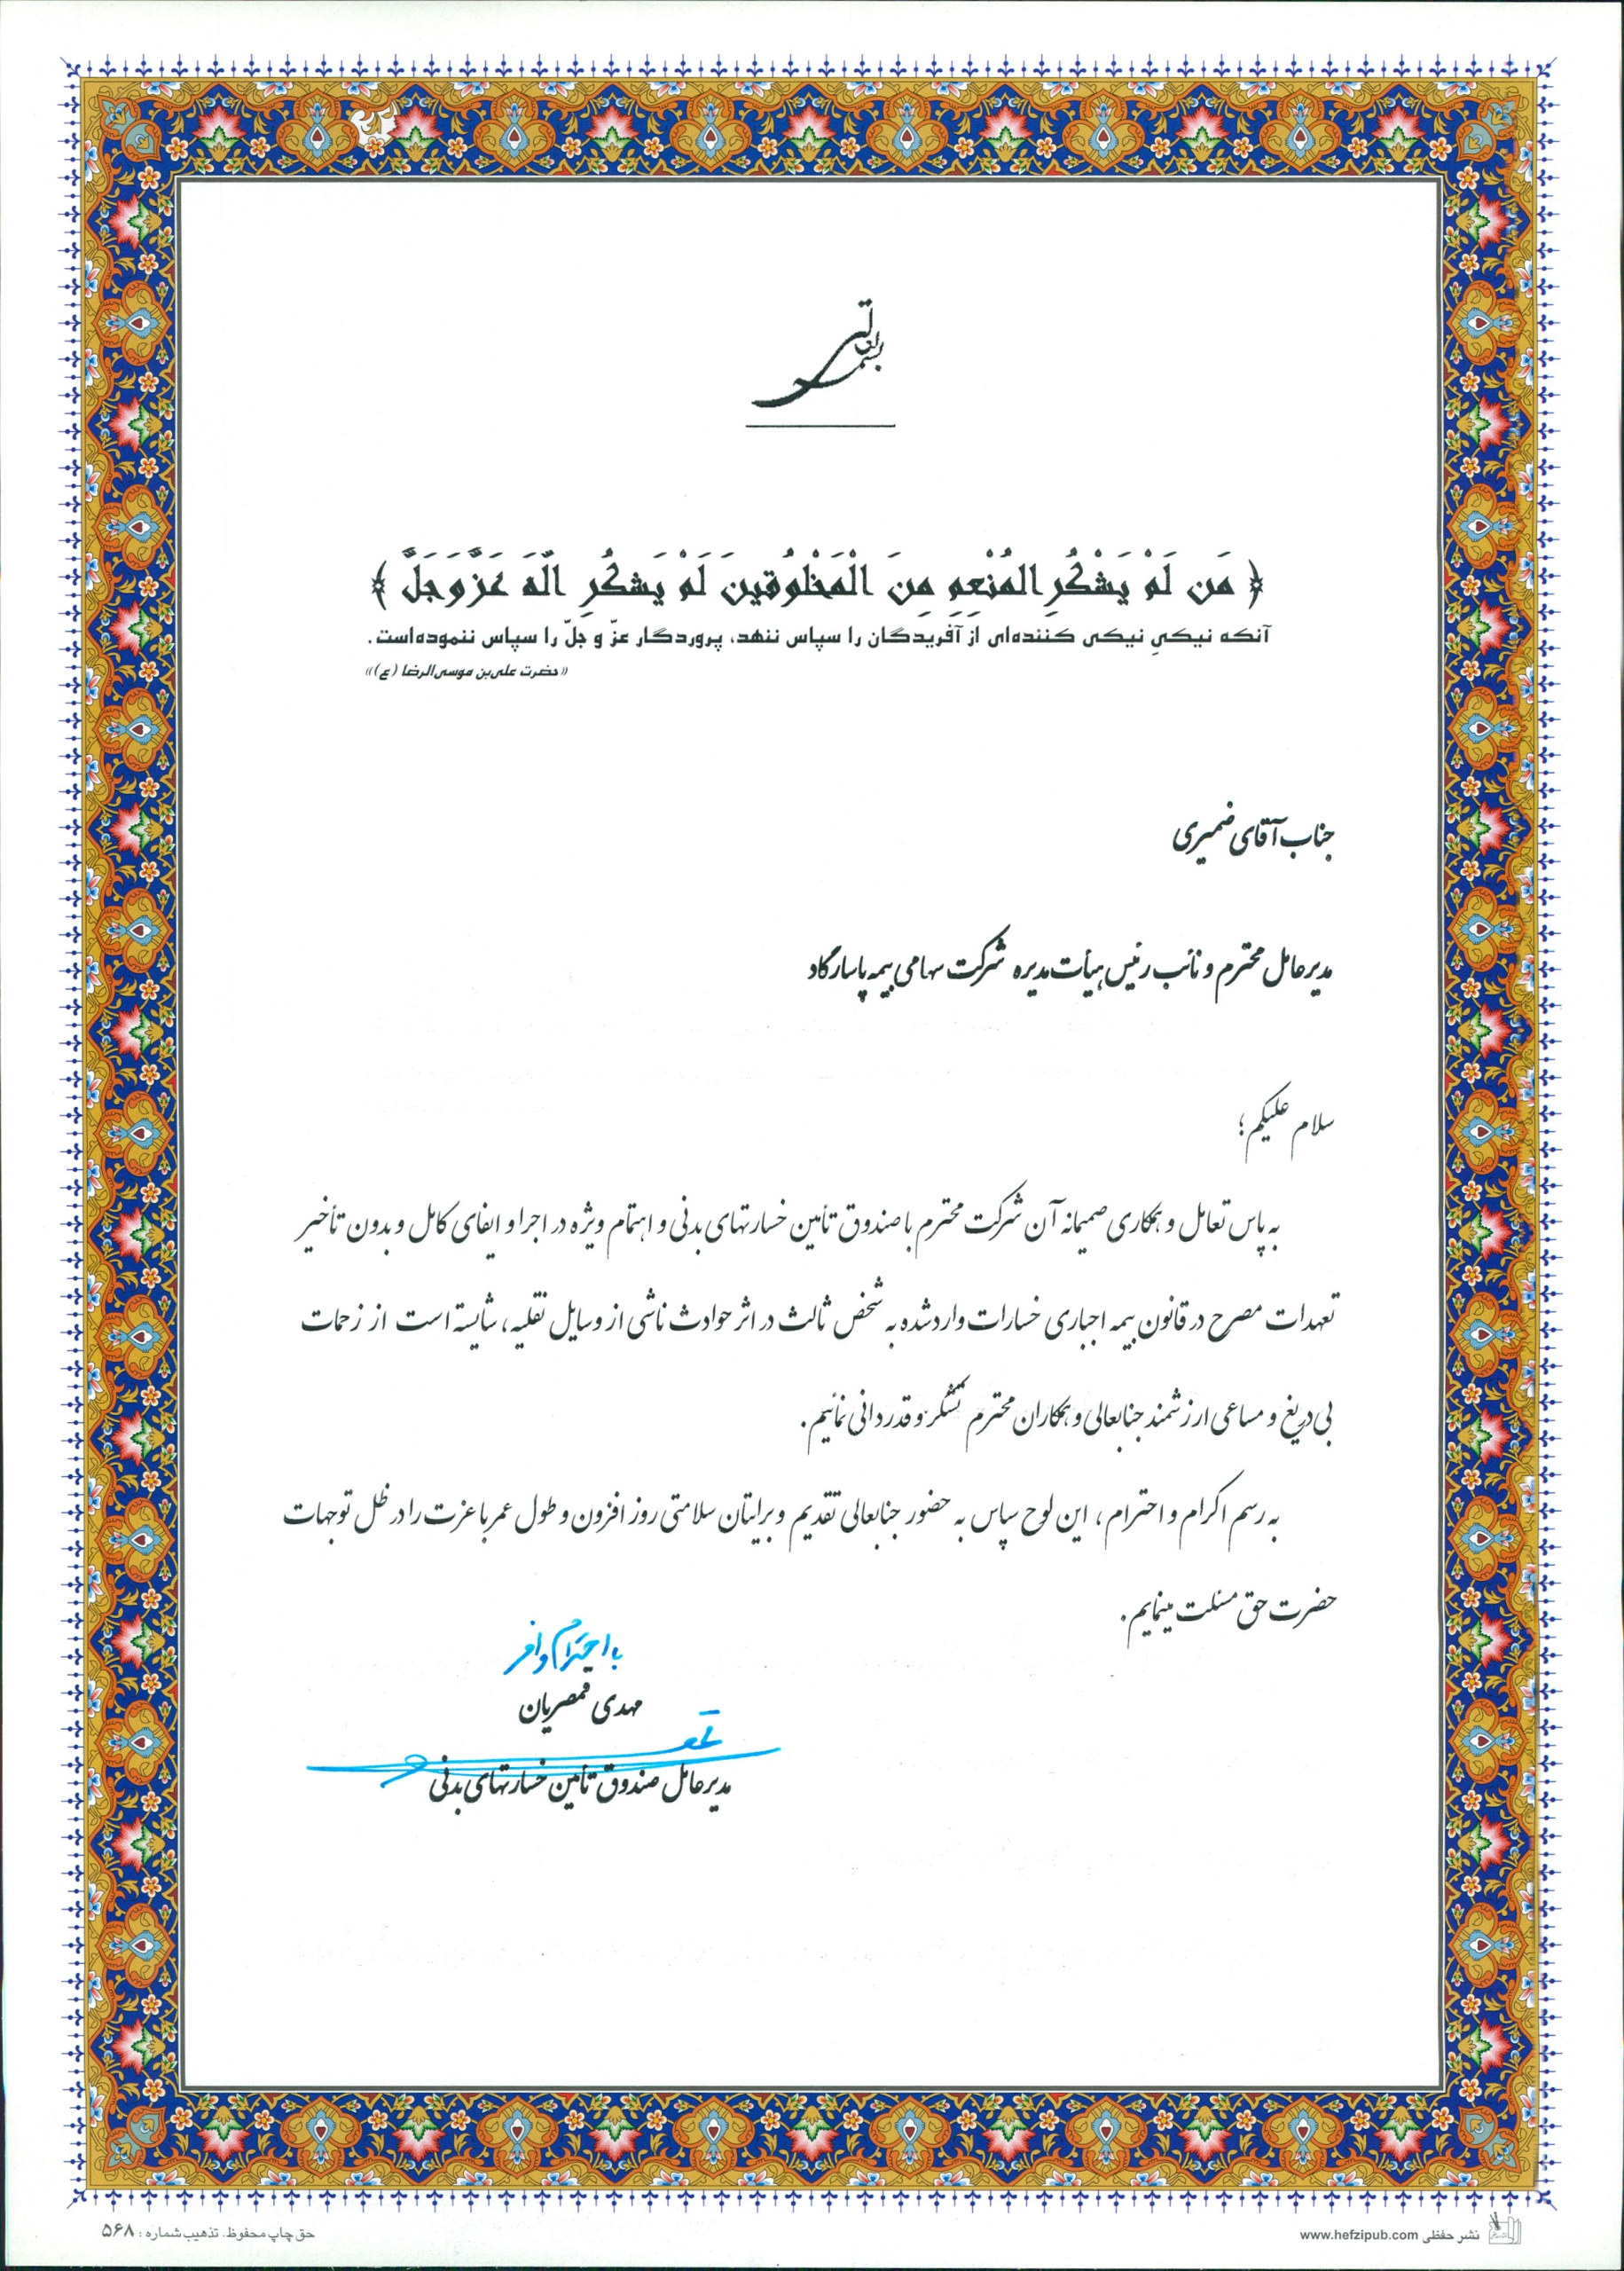 بسمه تعالی
﴿ مَن لَمْ يَشْكُرِ المُنْعِمِ مِنَ الْمَخْلوُقينَ لَمْ يَشكُرِ اللّهَ عَزَّوَجَلَّ ﴾
آنکه نیکیِ نیکی کننده‌ای از آفریدگان را سپاس ننهد، پروردگار عزّ و جلّ را سپاس ننموده‌است.
«حضرت علی‌بن موسی‌الرضا (ع)»
جناب آقای ضمیری
مدیرعامل محترم و نائب رئیس هیأت مدیره شرکت سهامی بیمه پاسارگاد
سلام علیکم؛
به پاس تعامل و همکاری صمیمانه آن شرکت محترم با صندوق تأمین خسارتهای بدنی و اهتمام ویژه در اجرا و ایفای کامل و بدون تأخیر
تعهدات مصرح در قانون بیمه اجباری خسارات وارد شده به شخص ثالث در اثر حوادث ناشی از وسایل نقلیه، شایسته است از زحمات
بی دریغ و مساعی ارزشمند جنابعالی و همکاران محترم تشکر و قدردانی نمائیم.
به رسم اکرام و احترام، این لوح سپاس به حضور جنابعالی تقدیم و برایتان سلامتی روز افزون و طول عمر با عزت را در ظل توجهات
حضرت حق مسئلت مینمایم.
با احترام وافر
مهدی قمصریان
مدیرعامل صندوق تأمین خسارتهای بدنی
حق چاپ محفوظ. تذهیب شماره : ۵۶۸
نشر حفظی www.hefzipub.com